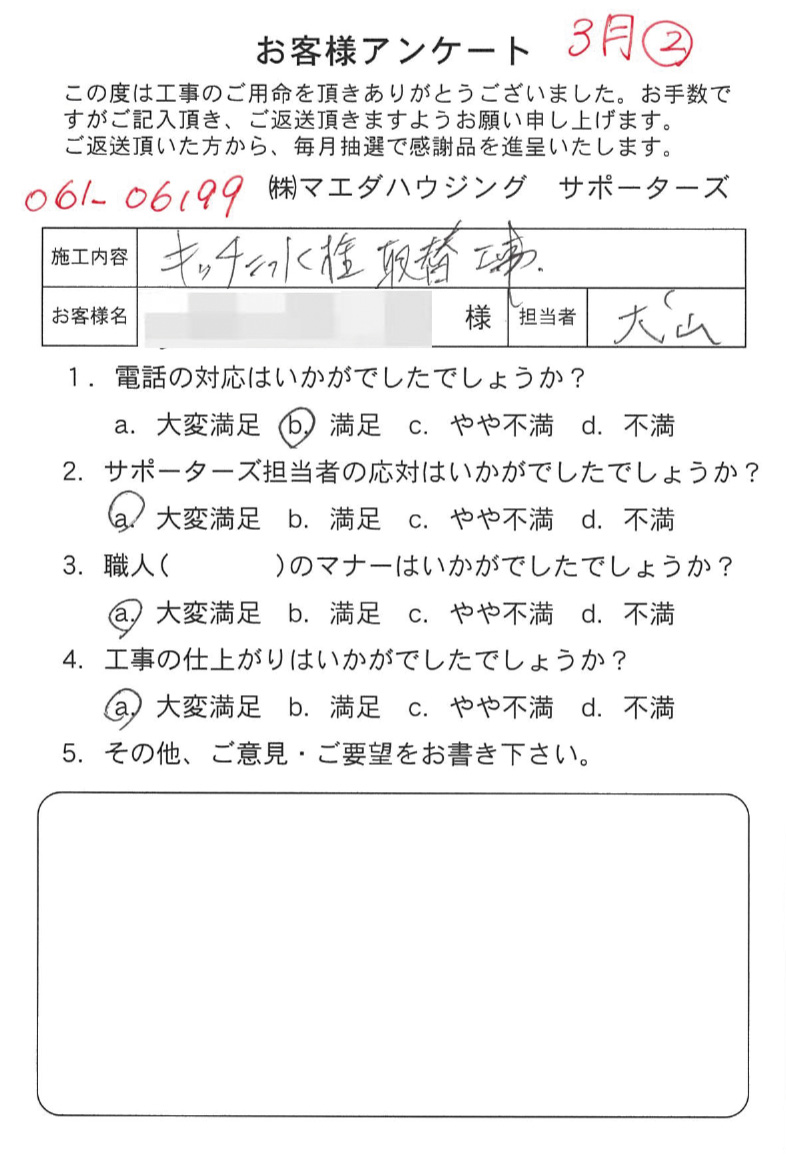 お客様アンケート 3月②
この度は工事のご用命を頂きありがとうございました。お手数で
すがご記入頂き、ご返送頂きますようお願い申し上げます。
ご返送頂いた方から、毎月抽選で感謝品を進呈いたします。
061-06199 ㈱マエダハウジング サポーターズ
施工内容 キッチン水栓取替工事.
お客様名 様 担当者 大山
1. 電話の対応はいかがでしたでしょうか?
a. 大変満足 b. 満足 c. やや不満 d. 不満
2. サポーターズ担当者の応対はいかがでしたでしょうか?
a. 大変満足 b. 満足 c. やや不満 d. 不満
3. 職人( )のマナーはいかがでしたでしょうか?
a. 大変満足 b. 満足 c. やや不満 d. 不満
4. 工事の仕上がりはいかがでしたでしょうか?
a. 大変満足 b. 満足 c. やや不満 d. 不満
5. その他、ご意見・ご要望をお書き下さい。